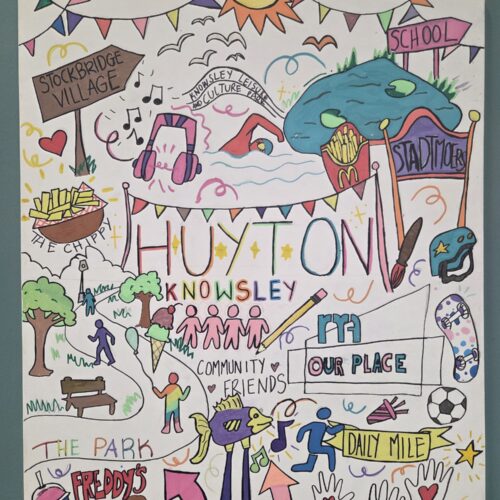 SCHOOL
STOCKBRIDGE
VILLAGE
KNOWSLEY LEISURE
AND CULTURE PARK
STADTMOERS
M
THE CHIPPY
HUYTON
KNOWSLEY
COMMUNITY
FRIENDS
OUR PLACE
THE PARK
DAILY MILE
FREDDY'S